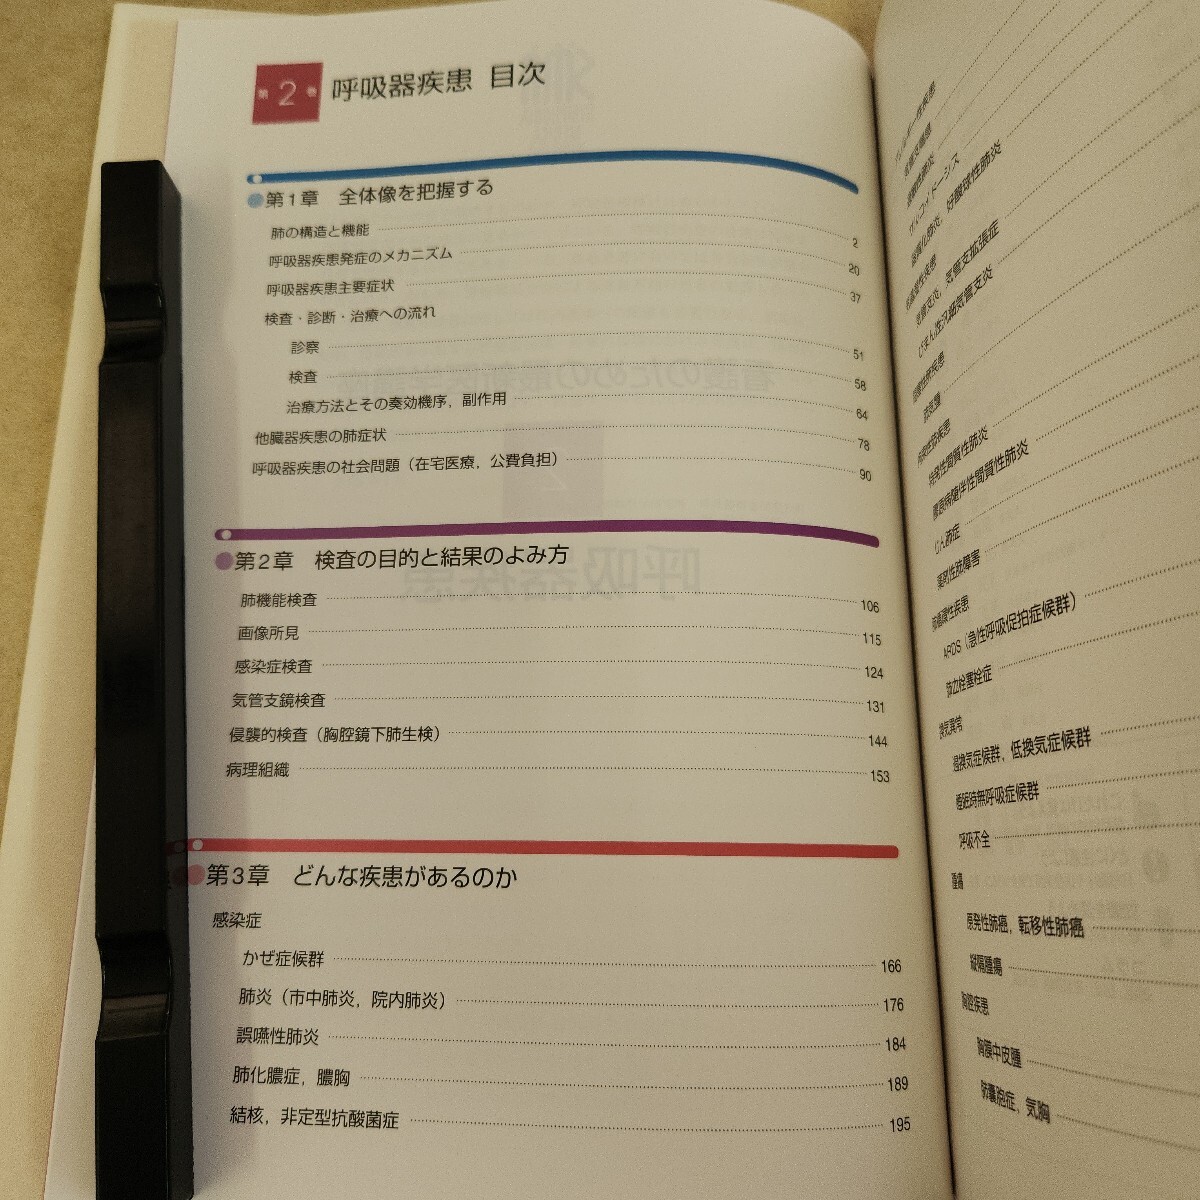 第2巻 呼吸器疾患 目次
第1章 全体像を把握する
肺の構造と機能 2
呼吸器疾患発症のメカニズム 20
呼吸器疾患主要症状 37
検査・診断・治療への流れ
診察 51
検査 58
治療方法とその奏効機序，副作用 64
他臓器疾患の肺症状 78
呼吸器疾患の社会問題（在宅医療，公費負担） 90
第2章 検査の目的と結果のよみ方
肺機能検査 106
画像所見 115
感染症検査 124
気管支鏡検査 131
侵襲的検査（胸腔鏡下肺生検） 144
病理組織 153
第3章 どんな疾患があるのか
感染症
かぜ症候群 166
肺炎（市中肺炎，院内肺炎） 176
誤嚥性肺炎 184
肺化膿症，膿胸 189
結核，非定型抗酸菌症 195
好酸球性肺炎
気管支拡張症
びまん性汎細気管支炎
肺気腫
特発性間質性肺炎
膠原病随伴性間質性肺炎
じん肺症
薬剤性肺障害
ARDS（急性呼吸促拍症候群）
肺血栓塞栓症
換気異常
過換気症候群，低換気症候群
睡眠時無呼吸症候群
呼吸不全
腫瘍
原発性肺癌，転移性肺癌
縦隔腫瘍
胸腔疾患
胸膜中皮腫
肺嚢胞症，気胸